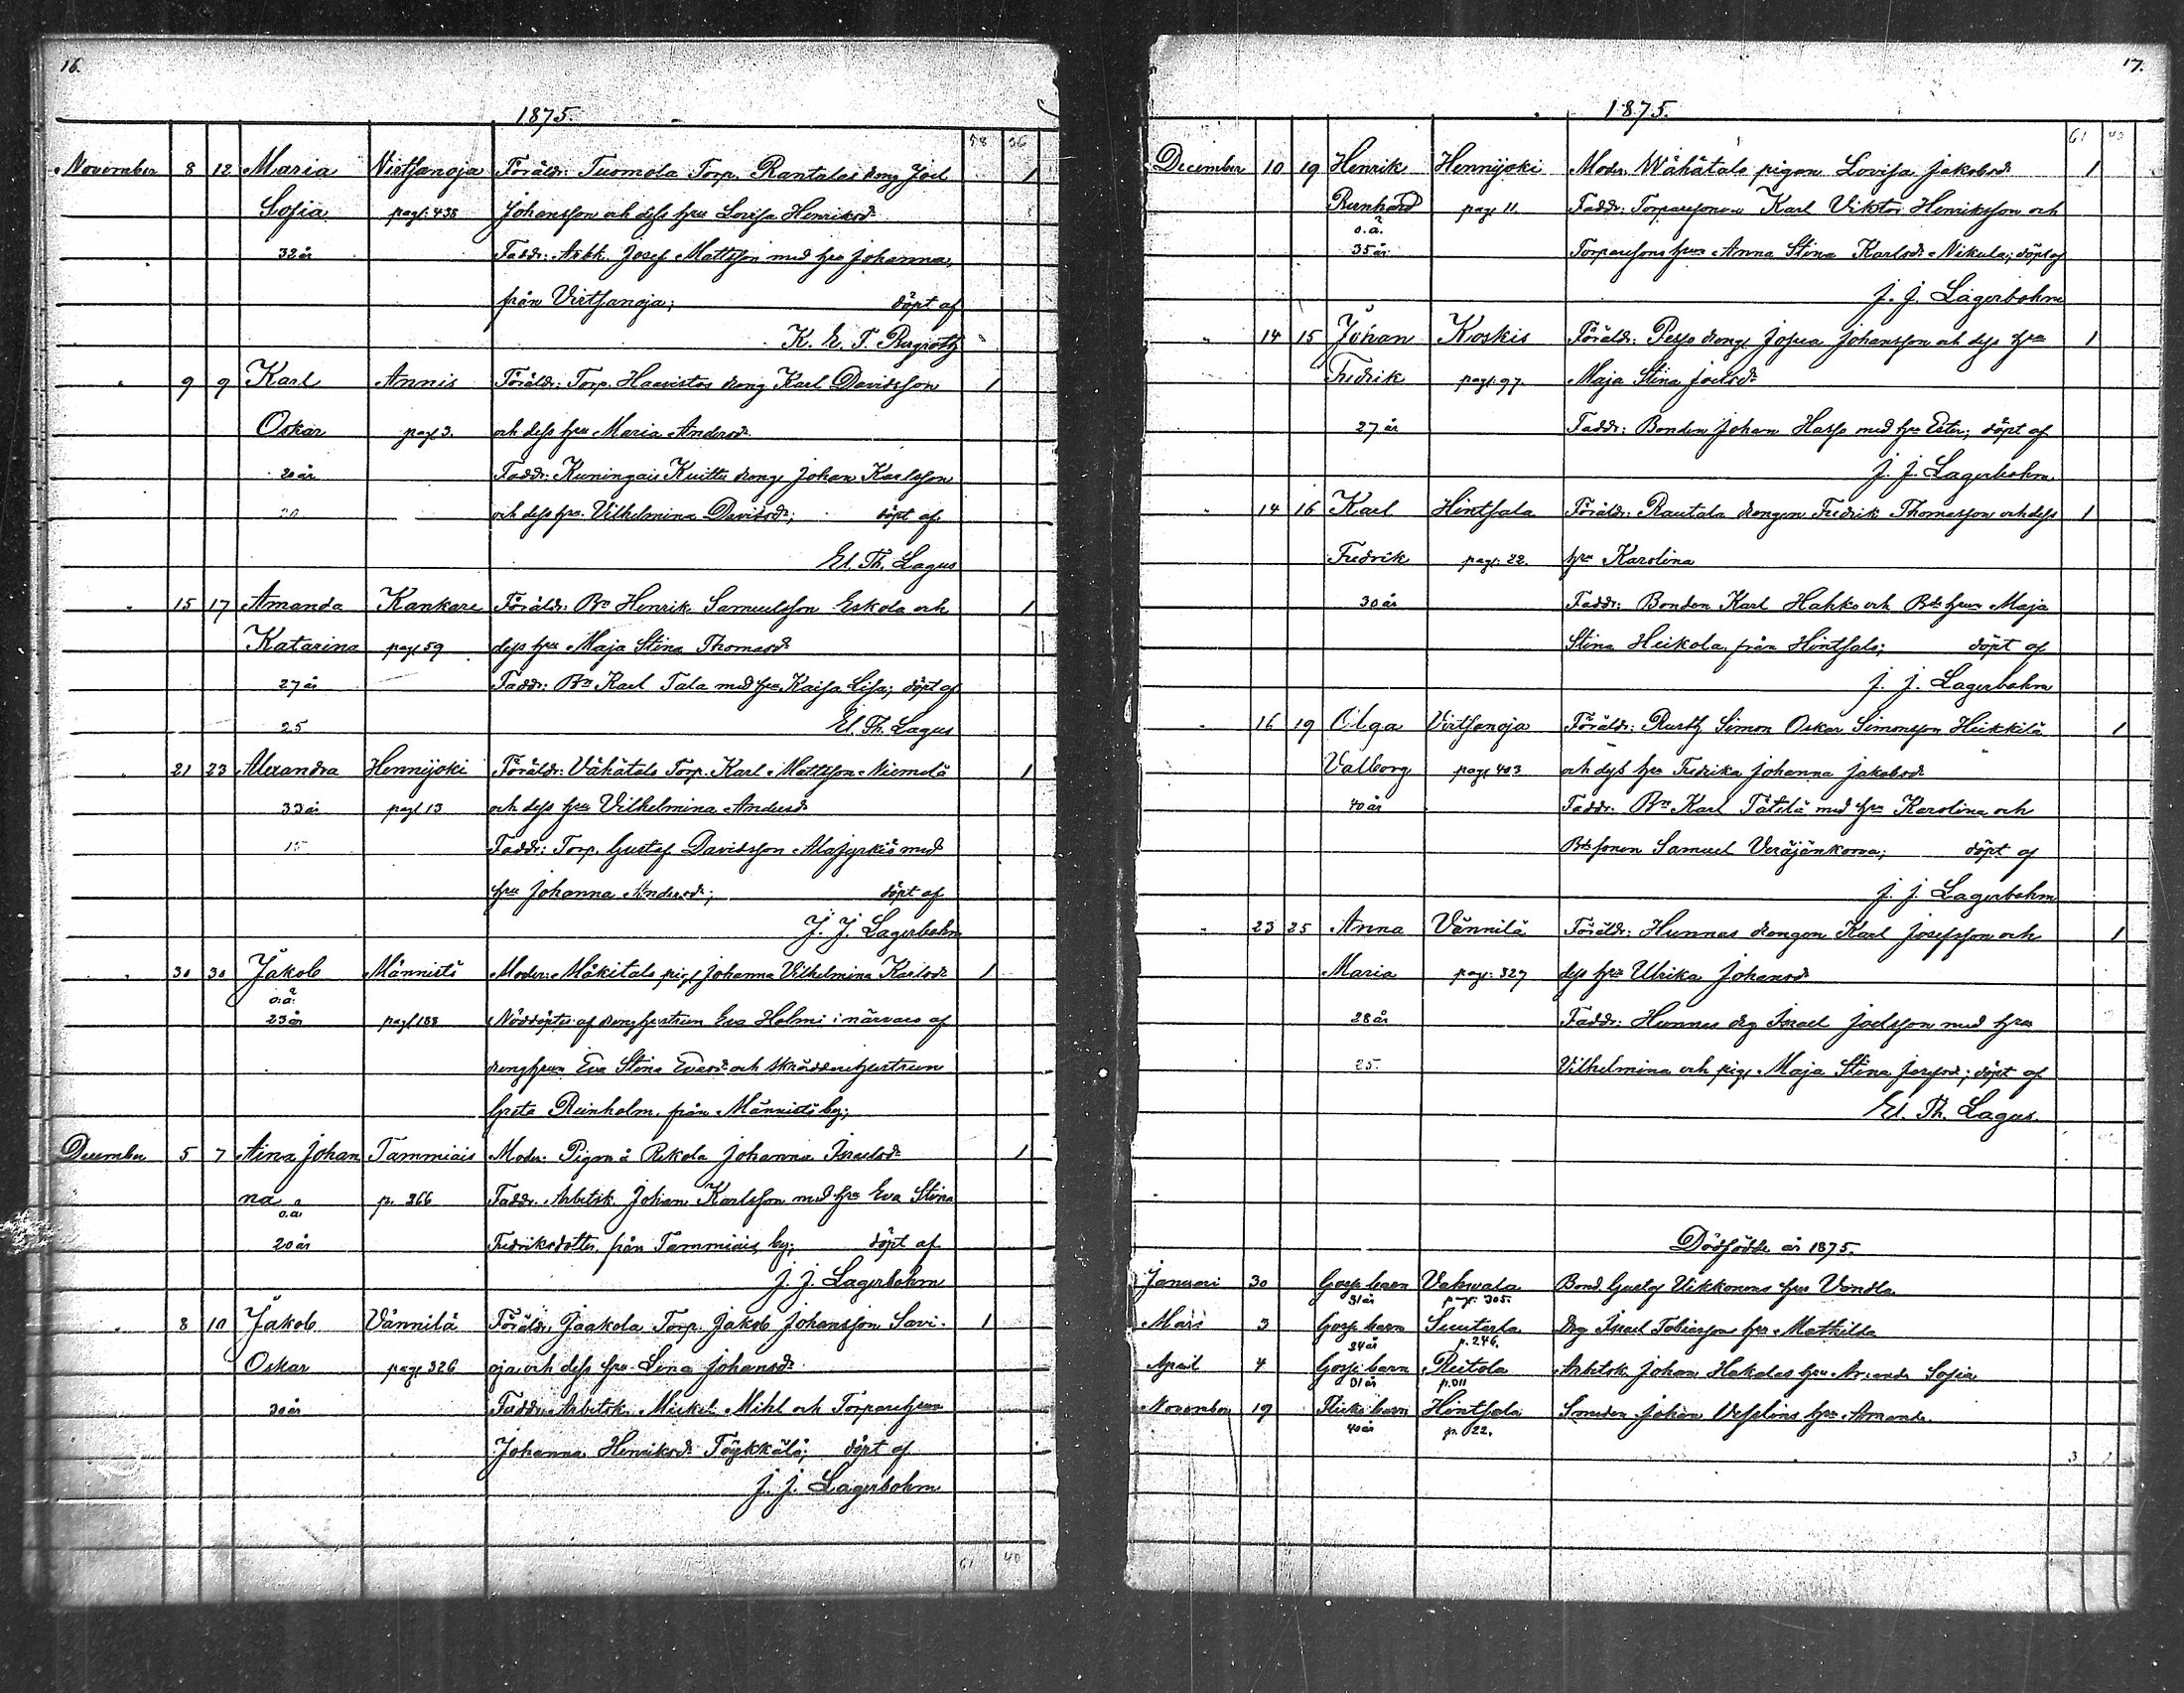 16.
1875.
58 36
November 8 12 Maria Virtsanoja Föräldr: Tuomola Torp. Rantalas dräng Joel 1
Sofia pag. 438 Johansson och dess hru Lovisa Henriksdr
32 år Faddr: Arbk. Josef Mattsson med hru Johanna,
från Virtsanoja; döpt af
K. E. F. Bergroth
" 9 9 Karl Annis Föräldr: Torp. Haavistos dräng Karl Davidsson 1
Oskar pag. 3. och dess hru Maria Andersdr
20 år Faddr: Kuningais Kuittu dräng Johan Karlsson
20 och dess hru Vilhelmina Davidsdr; döpt af
El. Th. Lagus
" 15 17 Amanda Kankare Föräldr: Bn Henrik Samuelsson Eskola och 1
Katarina pag. 59 dess hru Maja Stina Thomasdr
27 år Faddr: Bn Karl Tala med hru Kaisa Lisa; döpt af
25 El. Th. Lagus
" 21 23 Alexandra Hennijoki Föräldr: Vähätalo Torp. Karl Mattsson Niemelä 1
33 år pag. 13 och dess hru Vilhelmina Andersdr
15 Faddr: Torp. Gustaf Davidsson Alasyrkiö med
hru Johanna Andersdr; döpt af
J. J. Lagerbohm
" 30 30 Jakob Männistö Moder: Mäkitalo pig. Johanna Vilhelmina Karlsdr 1
o.ä.
23 år pag. 188 Nöddöptes af dränghustrun Eva Holmi i närvaro af
dränghrun Eva Stina Evasdr och skräddarehustrun
Greta Reinholm, från Männistö by;
December 5 7 Aina Johan Tammiais Moder: Pigan å Rekola Johanna Israelsdr 1
na p. 366 Faddr. Arbetsk. Johan Karlsson med hru Eva Stina
o.ä.
20 år Fredriksdotter, från Tammiais by; döpt af
J. J. Lagerbohm
" 8 10 Jakob Vännilä Föräldr. Jaakola Torp. Jakob Johansson Savi- 1
Oskar pag. 326 oja och dess hru Lena Johansdr
30 år Faddr. Arbetsk. Mickel Mihl och Torparehrun
Johanna Henriksdr Töykkälä; döpt af
J. J. Lagerbohm
61 40
17.
1875.
61 40
December 10 19 Henrik Hennijoki Moder. Wähätalo pigan Lovisa Jakobsdr 1
Bernhard pag. 11. Faddr: Torparesonen Karl Viktor Henriksson och
o.ä.
35 år Torparesons hrun Anna Stina Karlsdr Nikula; döpt af
J. J. Lagerbohm
" 14 15 Johan Koskis Föräldr: Pelto dräng Josua Johansson och dess hru 1
Fredrik pag. 97. Maja Stina Joelsdr
27 år Faddr: Bonden Johan Hasso med hru Ester; döpt af
J. J. Lagerbohm.
" 14 16 Karl Hintsala Föräldr: Rautala drängen Fredrik Thomasson och dess 1
Fredrik pag. 22. hru Karolina
30 år Faddr: Bonden Karl Hahko och Bde hrun Maja
Stina Heikola, från Hintsala; döpt af
J. J. Lagerbohm
" 16 19 Olga Virtsanoja Föräldr: Rusth. Simon Oskar Simonsson Heikkilä 1
Valborg pag. 403 och dess hru Fredrika Johanna Jakobsdr
40 år Faddr: Bn Karl Tätilä med hru Karolina och
Bdesonen Samuel Veräjänkorva; döpt af
J. J. Lagerbohm
" 23 25 Anna Vännilä Föräldr: Hunnas drängen Karl Josefsson och 1
Maria pag. 327 dess hru Ulrika Johansdr
28 år Faddr: Hunnas drg Israel Joelsson med hru
25. Vilhelmina och pig. Maja Stina Josefsdr; döpt af
El. Th. Lagus.
Dödfödde år 1875.
Januari 30 Gosse barn Vahvala Bond. Gustaf Uikkonens hru Vendla
31 år pag. 305.
Mars 3 Gosse barn Suutarla Drg Israel Tobiassons hru Mathilda
34 år p. 246.
April 4 Gosse barn Reitola Arbetsk. Johan Hakalas hru Amanda Sofia
31 år
November 19 Flicke barn Hintsala Smeden Johan Vesslins hru Amanda.
40 år p. 22.
3 1